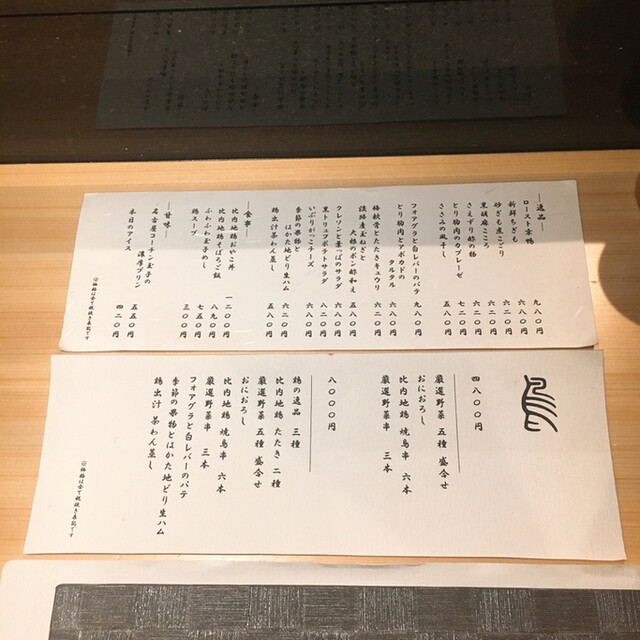 ―逸品―
ロースト京鴨 九八〇円
新鮮ちぎも 六八〇円
砂ぎも虎こどり 六二〇円
黒胡麻こころ 六二〇円
さえずり酢の物 六二〇円
とり胸肉のカプレーゼ 七二〇円
ささみの風干し 五八〇円
フォアグラと白レバーのパテ 九八〇円
とり胸肉とアボカドの
タルタル 六八〇円
梅軟骨とたたきキュウリ 六二〇円
淡路産玉ねぎと
大根のポン酢和え 五八〇円
クレソンと葉っぱのサラダ 六八〇円
黒トリュフポテトサラダ 八二〇円
いぶりがっこチーズ 六八〇円
季節の果物と
はかた地どり生ハム 六二〇円
鶏出汁茶わん蒸し 五八〇円
―食事―
比内地鶏おやこ丼 一二〇〇円
比内地鶏そぼろご飯 八九〇円
ふわふわ玉子めし 七五〇円
鶏スープ 三〇〇円
―甘味―
名古屋コーチン玉子の
濃厚プリン 五五〇円
本日のアイス 四二〇円
※価格は全て税抜き表記です
鳥
四八〇〇円
厳選野菜 五種 盛合せ
おにおろし
比内地鶏 焼鳥串 六本
厳選野菜串 三本
八〇〇〇円
鶏の逸品 三種
比内地鶏 たたき 二種
厳選野菜 五種 盛合せ
おにおろし
比内地鶏 焼鳥串 六本
厳選野菜串 三本
フォアグラと白レバーのパテ
季節の果物とはかた地どり生ハム
鶏出汁 茶わん蒸し
※価格は全て税抜き表記です